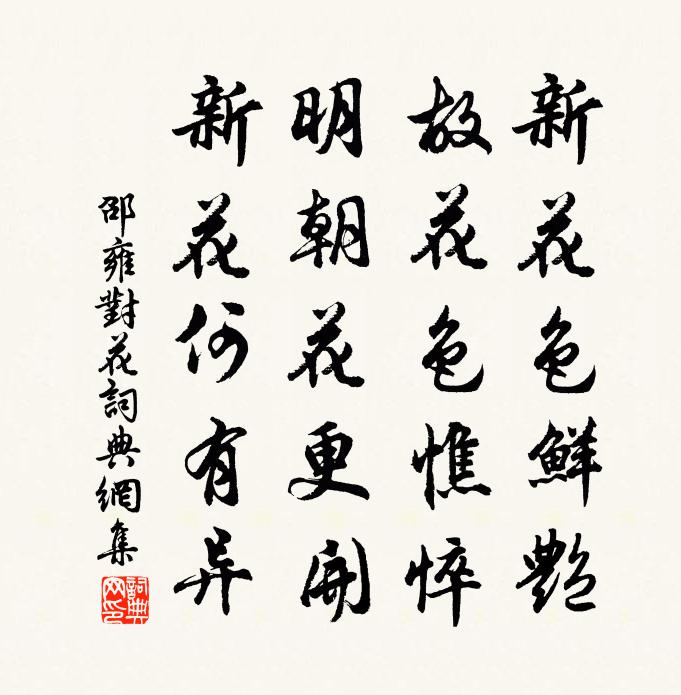 新花色鮮艷
故花色憔悴
明朝花更開
新花何有异
邵雍對花詞典網集
詞典网印